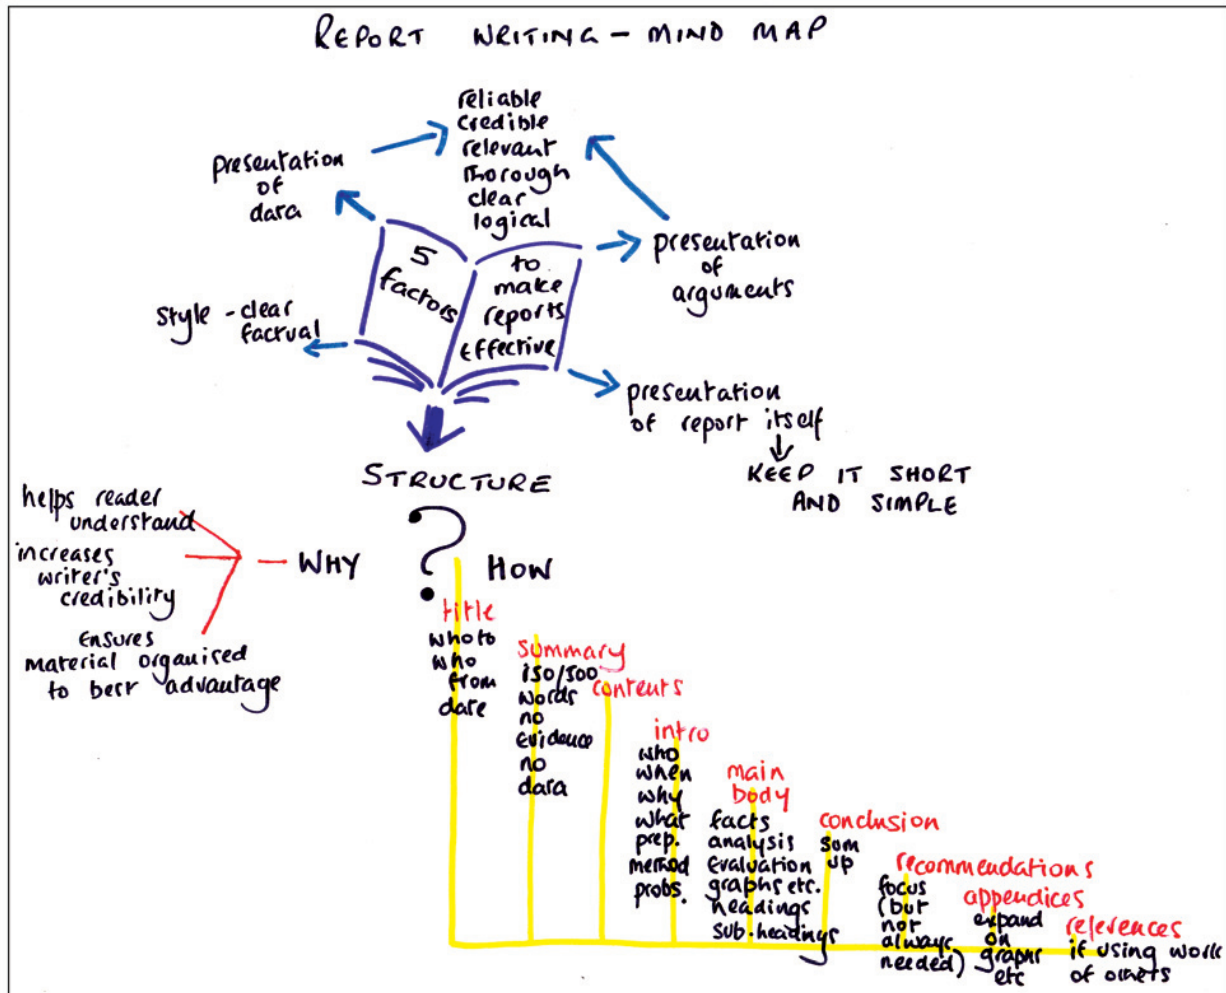 REPORT WRITING - MIND MAP
reliable
credible
relevant
thorough
clear
logical
presentation
of
data
5
factors
to
make
reports
effective
presentation
of
arguments
style - clear
factual
presentation
of report itself
KEEP IT SHORT
AND SIMPLE
STRUCTURE
?
WHY
helps reader
understand
increases
writer's
credibility
ensures
material organised
to best advantage
HOW
title
who to
who
from
date
summary
150/300
words
no
evidence
no
data
contents
intro
who
when
why
what
prep.
method
probs.
main
body
facts
analysis
evaluation
graphs etc.
headings
sub-headings
conclusion
sum
up
recommendations
focus
(but
not
always
needed)
appendices
expand
on
graphs
etc
references
if using work
of others